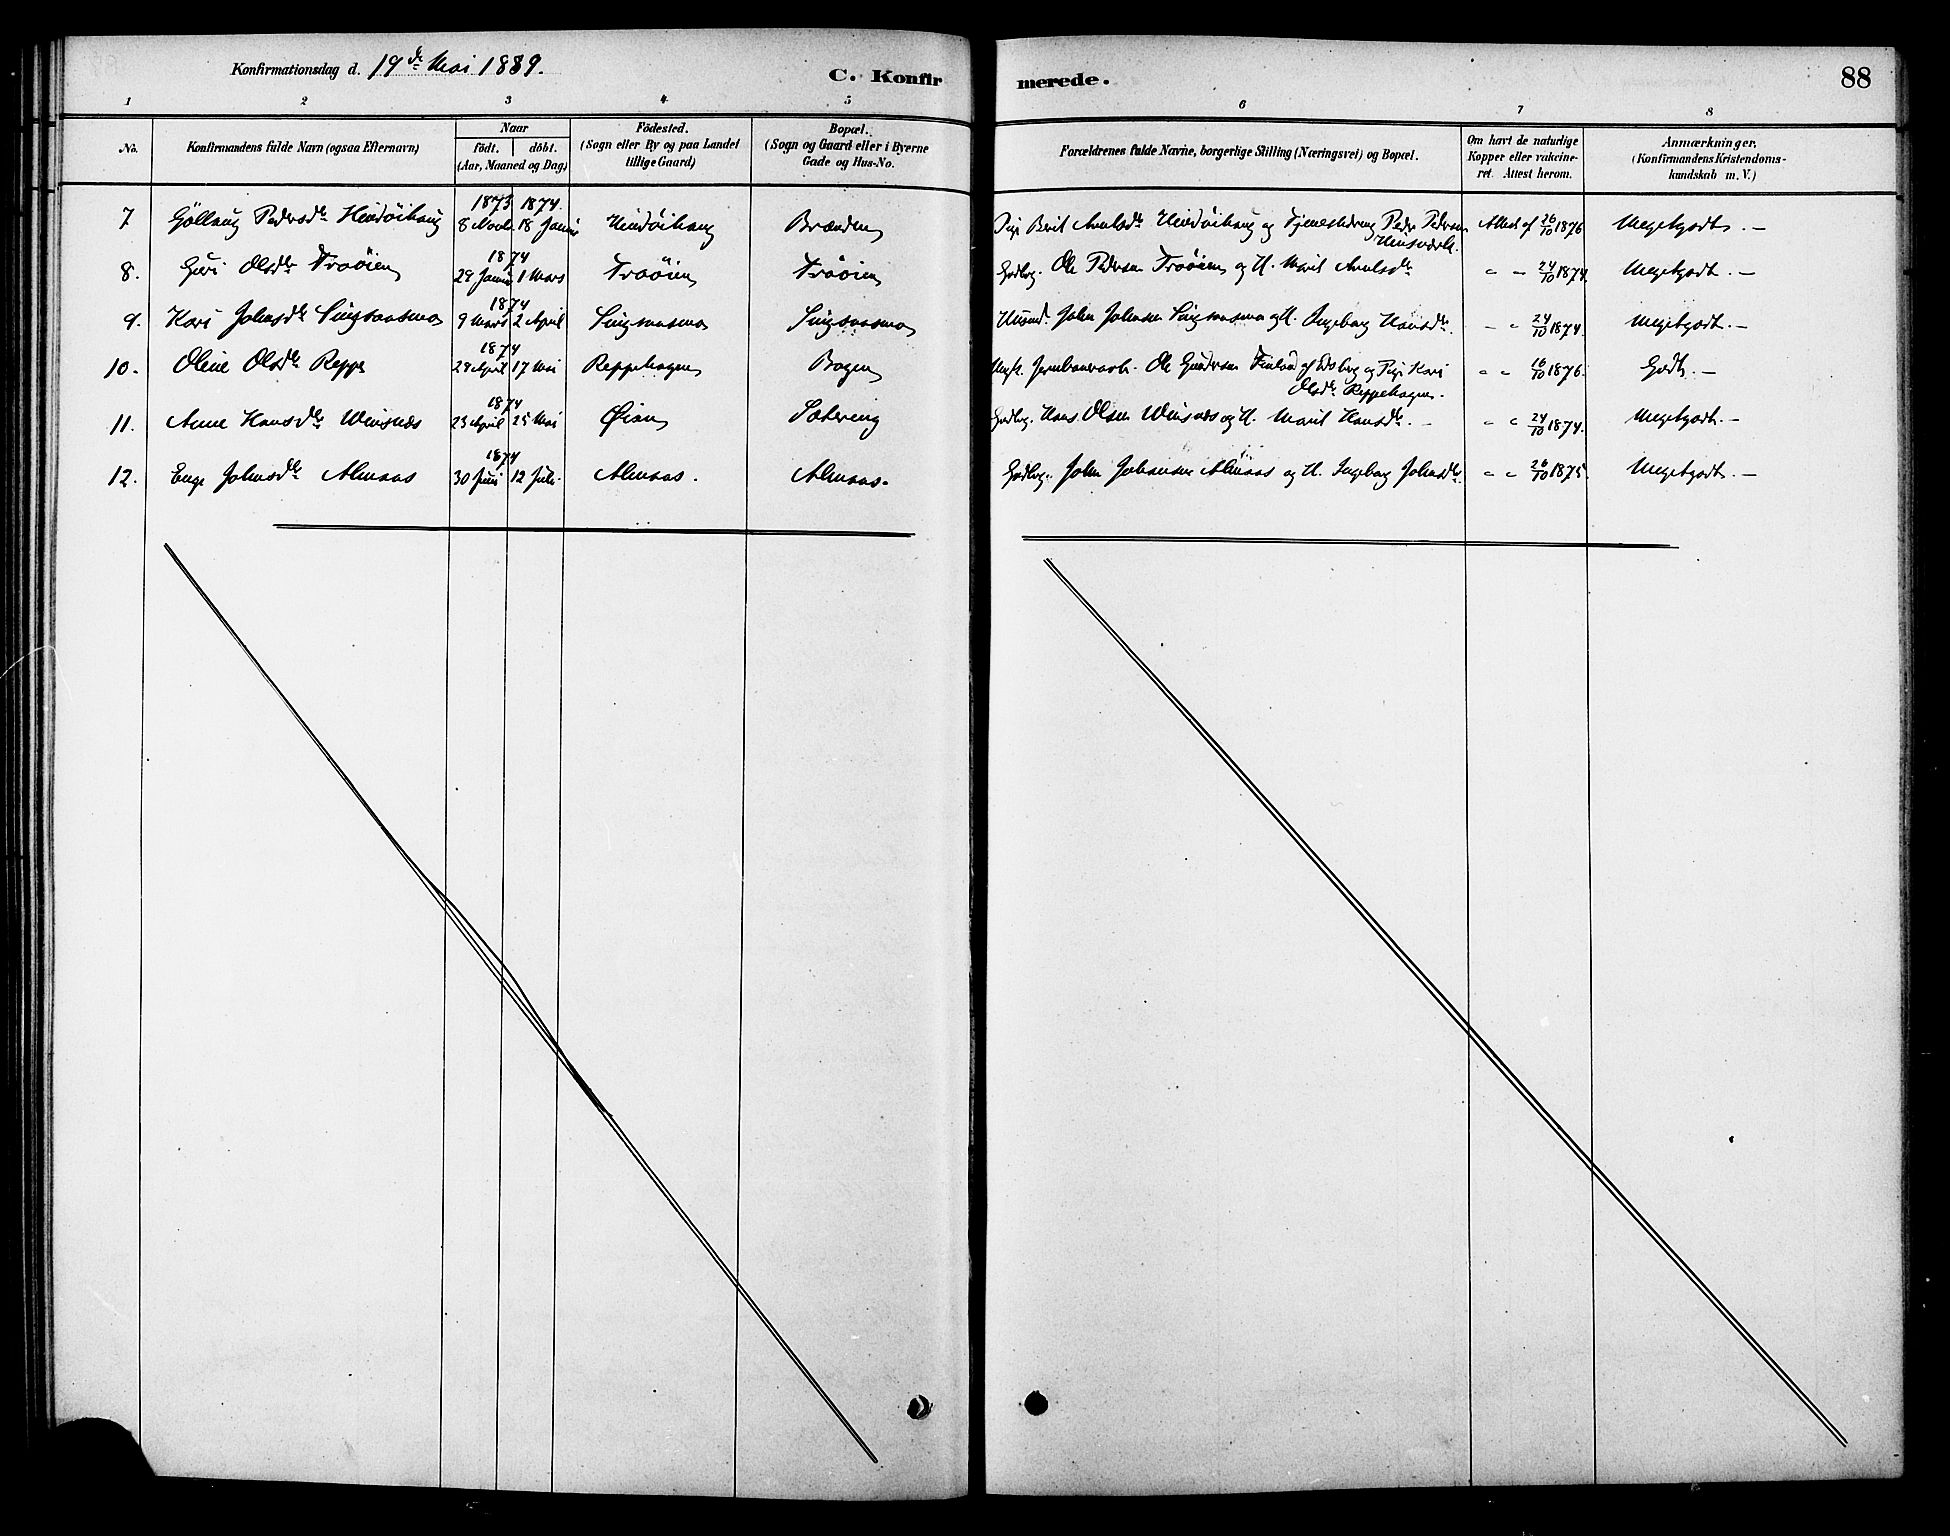 Konfirmationsdag d. 19de Mai 1889.
C. Konfirmerede.
88
1 2 3 4 5 6 7 8
No.
Konfirmandens fulde Navn (ogsaa Efternavn)
Naar
födt. döbt.
(Aar, Maaned og Dag)
Födested.
(Sogn eller By og paa Landet
tillige Gaard)
Bopæl.
(Sogn og Gaard eller i Byerne
Gade og Hus-No.
Forældrenes fulde Navne, borgerlige Stilling (Næringsvei) og Bopæl.
Om havt de naturlige
Kopper eller vakcine-
ret. Attest herom.
Anmærkninger,
(Konfirmandens Kristendoms-
kundskab m. V.)
1873 1874.
7 Göllaug Pedersdr Hindöihaug 8 Novb. 18 Januar Hindöihaug Brænden Pige Berit Arntsdr Hindöihaug og Tjenestedreng Peder Pedersen Attest af 26/10 1876 Megetgodt. —
1874
8. Guri Olsdr Troöien 29 Januar 1 Mars Troöien Troöien Gaardbrg. Ole Pedersen Troöien og H. Marit Arntsdr " " 24/10 1874. Megetgodt. —
1874
9. Kari Johnsdr Singsaasmo 9 Mars 2 April Singsaasmo Singsaasmo Husmd. John Johnsen Singsaasmo og H. Ingeborg Hansdr. " " 24/10 1874. Megetgodt. —
1874
10. Oline Olsdr Reppe 28 April 17 Mai Reppehagen Bogen Ungk. Jernbanearb. Ole Gundersen af Edsberg og Pige Kari " " 16/10 1876. Godt. —
Olsdr Reppehagen.
1874
11. Anne Hansdr Winsnes 23 April 25 Mai Öian Sætering Gaardbrg. Hans Olsen Winsnes og H. Marit Hansdr. — " " 24/10 1874. Megetgodt. —
1874
12. Enge Johnsdr Almaas 30 Juni 12 Juli. Almaas. Almaas. Gaardbrg. John Johansen Almaas og H. Ingeborg Johnsdr. " " 26/10 1875. Megetgodt. —